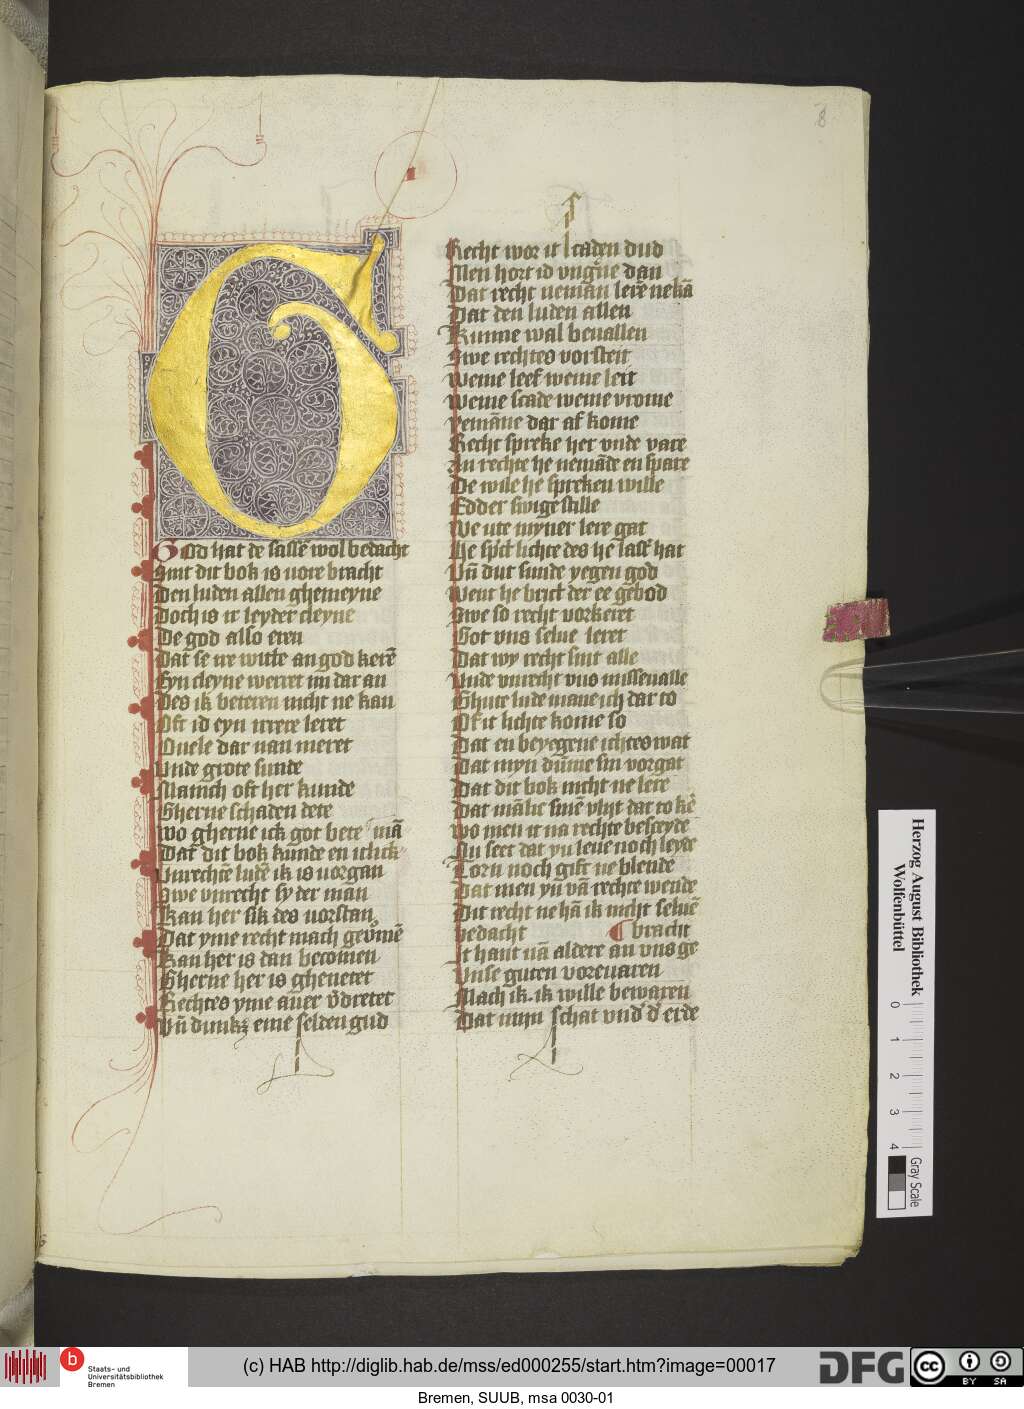 8
God hat de sassē wol bedacht
Sint dit bok is vore bracht
Den luden allen ghemeyne
Doch is ir leyder cleyne
De god also eren
Dat se ire witte an god kerē
Eyn cleyne werret im dar an
Des ik beteren nicht ne kan
Oft id eyn irrere leret
Ouele dar uan meret
Unde grote sunde
Mainch oft her kunde
Gherne schaden dete
Wo gherne ick got bete mā
Dat dit bok kunde en itlick
Unrechte ludē ik is uorgan
Swe unrecht sy der man
Kan her sik des uorstan
Dat yme recht mach geuͦmē
Kan her is dan becomen
Gherne her is gheneret
Rechtes yme auer v̄dretet
Uñ dunkꝫ eme selden gud
Recht wor it scaden dud
Men hort id ungͤne dan
Dat recht neman lerē nekā
Dat den luden allen
Kunne wal beuallen
Swe rechtes vorsteit
Weme leef weme leit
Weme scade weme vrome
Yemāne dar af kome
Recht spreke her vnde vare
An rechte he nemāde en spare
De wile he spreken wille
Edder swige stille
We ute myner lere gat
He spͥct lichte des hē last hat
Uñ dut sunde yegen god
Went he brict der ee gebod
Swe so recht vorkeret
Got vns selue leret
Dat wy recht sint alle
Unde vnrecht vns missevalle
Ghute lude mane ich dar to
Of it lichte kome so
Dat en beyegene ichtes wat
Dat myn dūme sin vorgat
Dat dit bok nicht ne lere
Dat mālic sinē vlyt dar to kē
Wo men it na rechte besceyde
Nu seet dat yu leue noch leyde
Torn noch gift ne blende
Dat men yu vā rechte wende
Dit recht ne hā ik nicht seluē
bedacht ¶ bracht
It hant uā aldere an vns ge
Unse guten vorevaren
Mach ik. ik wille bewaren
Dat myn schat vnd͛ d͛ erde
Herzog August Bibliothek
Wolfenbüttel
0 1 2 3 4
Gray Scale
b
Staats- und
Universitätsbibliothek
Bremen
(c) HAB http://diglib.hab.de/mss/ed000255/start.htm?image=00017
DFG
cc BY SA
Bremen, SUUB, msa 0030-01